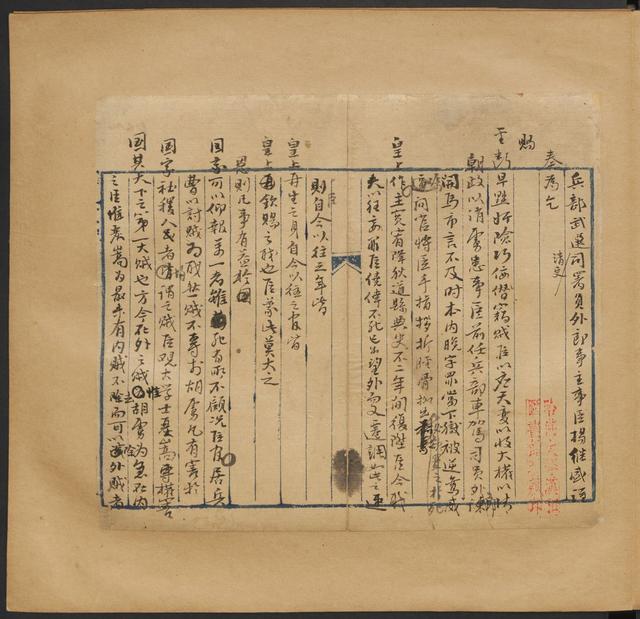 兵部武選司署員外郎事主事臣楊繼盛謹
清吏
奏為乞
賜
聖斷早逐奸險巧佞僭竊賊臣以應天變以收大權以清
朝政以消虜患事臣前任兵部車駕司員外郎諫
開馬市言不及時本內脫字罪當下獄被逆鸞威
逼問官將臣手指拶折脛骨
皇上作主宥降狄道縣典史不二年間復陞臣今職
夫以往臣僥倖不死已出望外而又遷調如此之速
則自今以往之年皆
皇上再生之身自今以往之官皆
皇上再欽賜之職也臣蒙此莫大之
恩則凡事有益於國
國家可以仰報萬一者雖死有所不顧況臣官居兵
曹以討賊為職然賊不專於胡虜凡有害於
國家社稷人民者均謂之賊臣觀大學士嚴嵩專權害
國其天下之第一大賊也方今在外之賊惟胡虜為急在內
之臣惟嚴嵩為最未有內賊不去而可以除外賊者